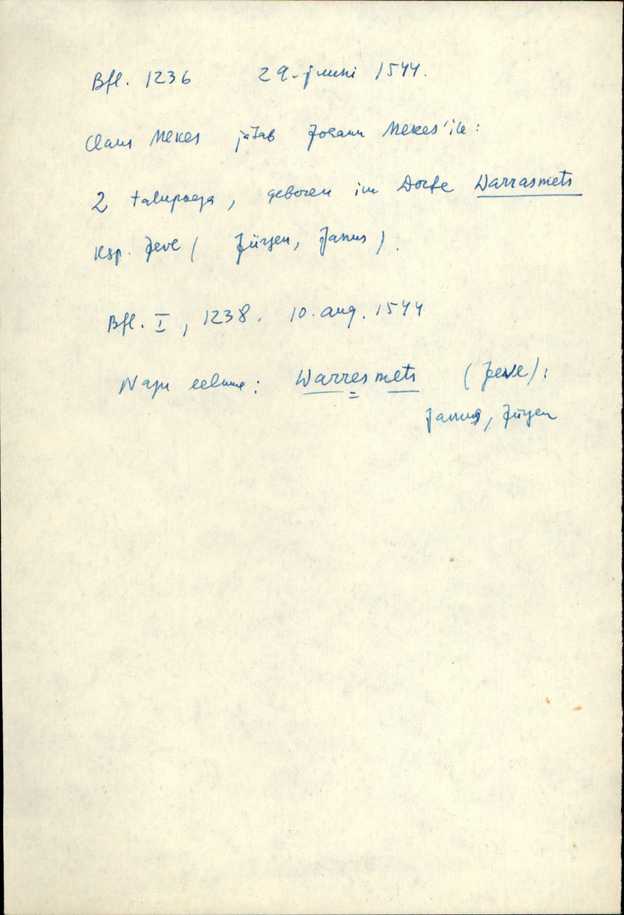 Bfl. 1236 29. juuni 1544.
Claus Mekes jätab Johann Mekes'ile:
2 talupoega, geboren im Dorfe Warrasmets
Ksp. Jeve (Jürgen, Janus).
Bfl. I, 1238. 10. aug. 1544
Nagu eelmine: Warresmets (Jeve):
Janus, Jürgen